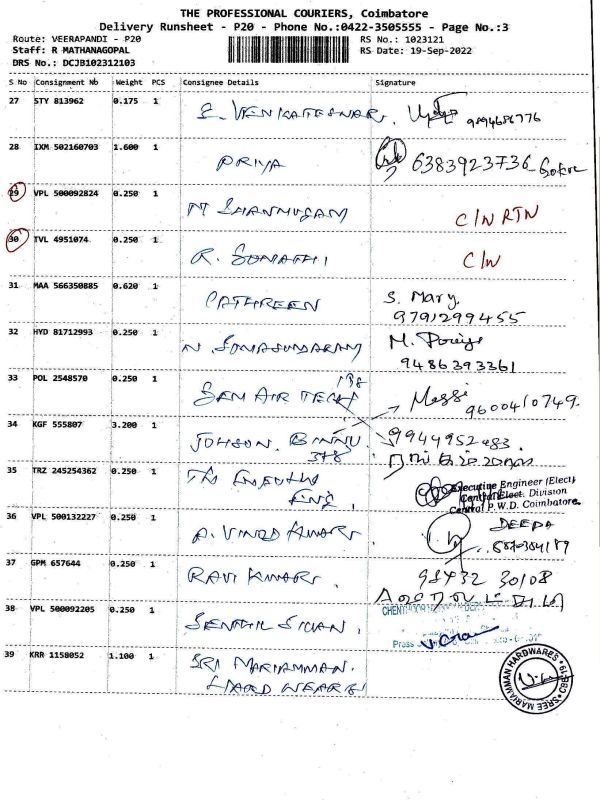 THE PROFESSIONAL COURIERS, Coimbatore
Delivery Runsheet - P20 - Phone No.:0422-3505555 - Page No.:3
Route: VEERAPANDI - P20 RS No.: 1023121
Staff: R MATHANAGOPAL RS Date: 19-Sep-2022
DRS No.: DCJB102312103
S No Consignment Nb Weight PCS Consignee Details Signature
27 STY 813962 0.175 1 S. VENKATESWARI.
28 IXM 502160703 1.600 1 PRIYA 6383923736
29 VPL 500092824 0.250 1 M SHANMUGAM C/N RTN
30 TVL 4951074 0.250 1 R. C/N
31 MAA 566350885 0.620 1 CATHREEN S. Mary.
9791299455
32 HYD 81712993 0.250 1 N. SOMASUNDARAM M.
9486393361
33 POL 2548570 0.250 1 AIR TECH 138 9600410749.
34 KGF 555807 3.200 1 JOHSON. BINNU 9944952483.
378
35 TRZ 245254362 0.250 1 THE Executive Engineer (Elect)
ENG. Central Elect. Division
Central P.W.D. Coimbatore.
36 VPL 500132227 0.250 1 A. VINOD KUMAR. DEEPA
37 GPM 657644 0.250 1 RAVI KUMAR. 98432 30108
38 VPL 500092205 0.250 1 SENTHIL SIVAN.
Press
39 KRR 1158052 1.100 1 SRI MARIAMMAN. SREE MARIAMMAN HARDWARES
HARD WEARS CBE-19